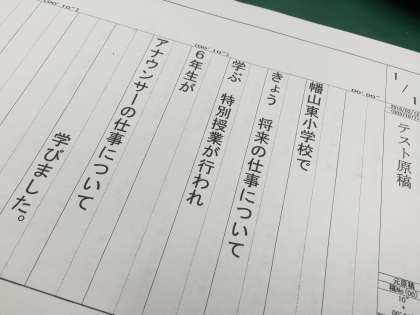 1 / 1
テスト原稿
00'00"
幡山東小学校で
きょう 将来の仕事について
学ぶ 特別授業が行われ
(00'10")
6年生が
アナウンサーの仕事について
学びました。